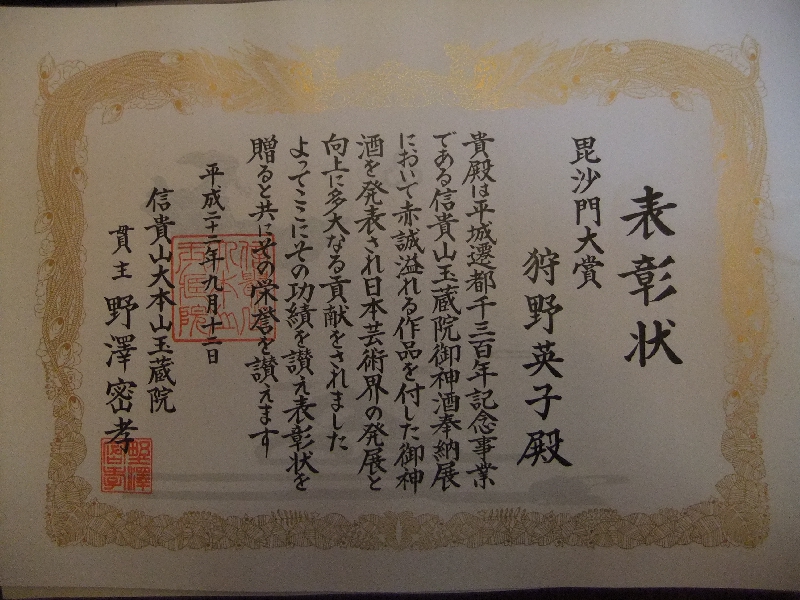 表彰状
毘沙門大賞
狩野英子殿
貴殿は平城遷都千三百年記念事業
である信貴山玉蔵院御神酒奉納展
において赤誠溢れる作品を付した御神
酒を発表され日本芸術界の発展と
向上に多大なる貢献をされました
よってここにその功績を讃え表彰状を
贈ると共にその栄誉を讃えます
平成二十二年九月十二日
信貴山大本山玉蔵院
貫主 野澤密孝